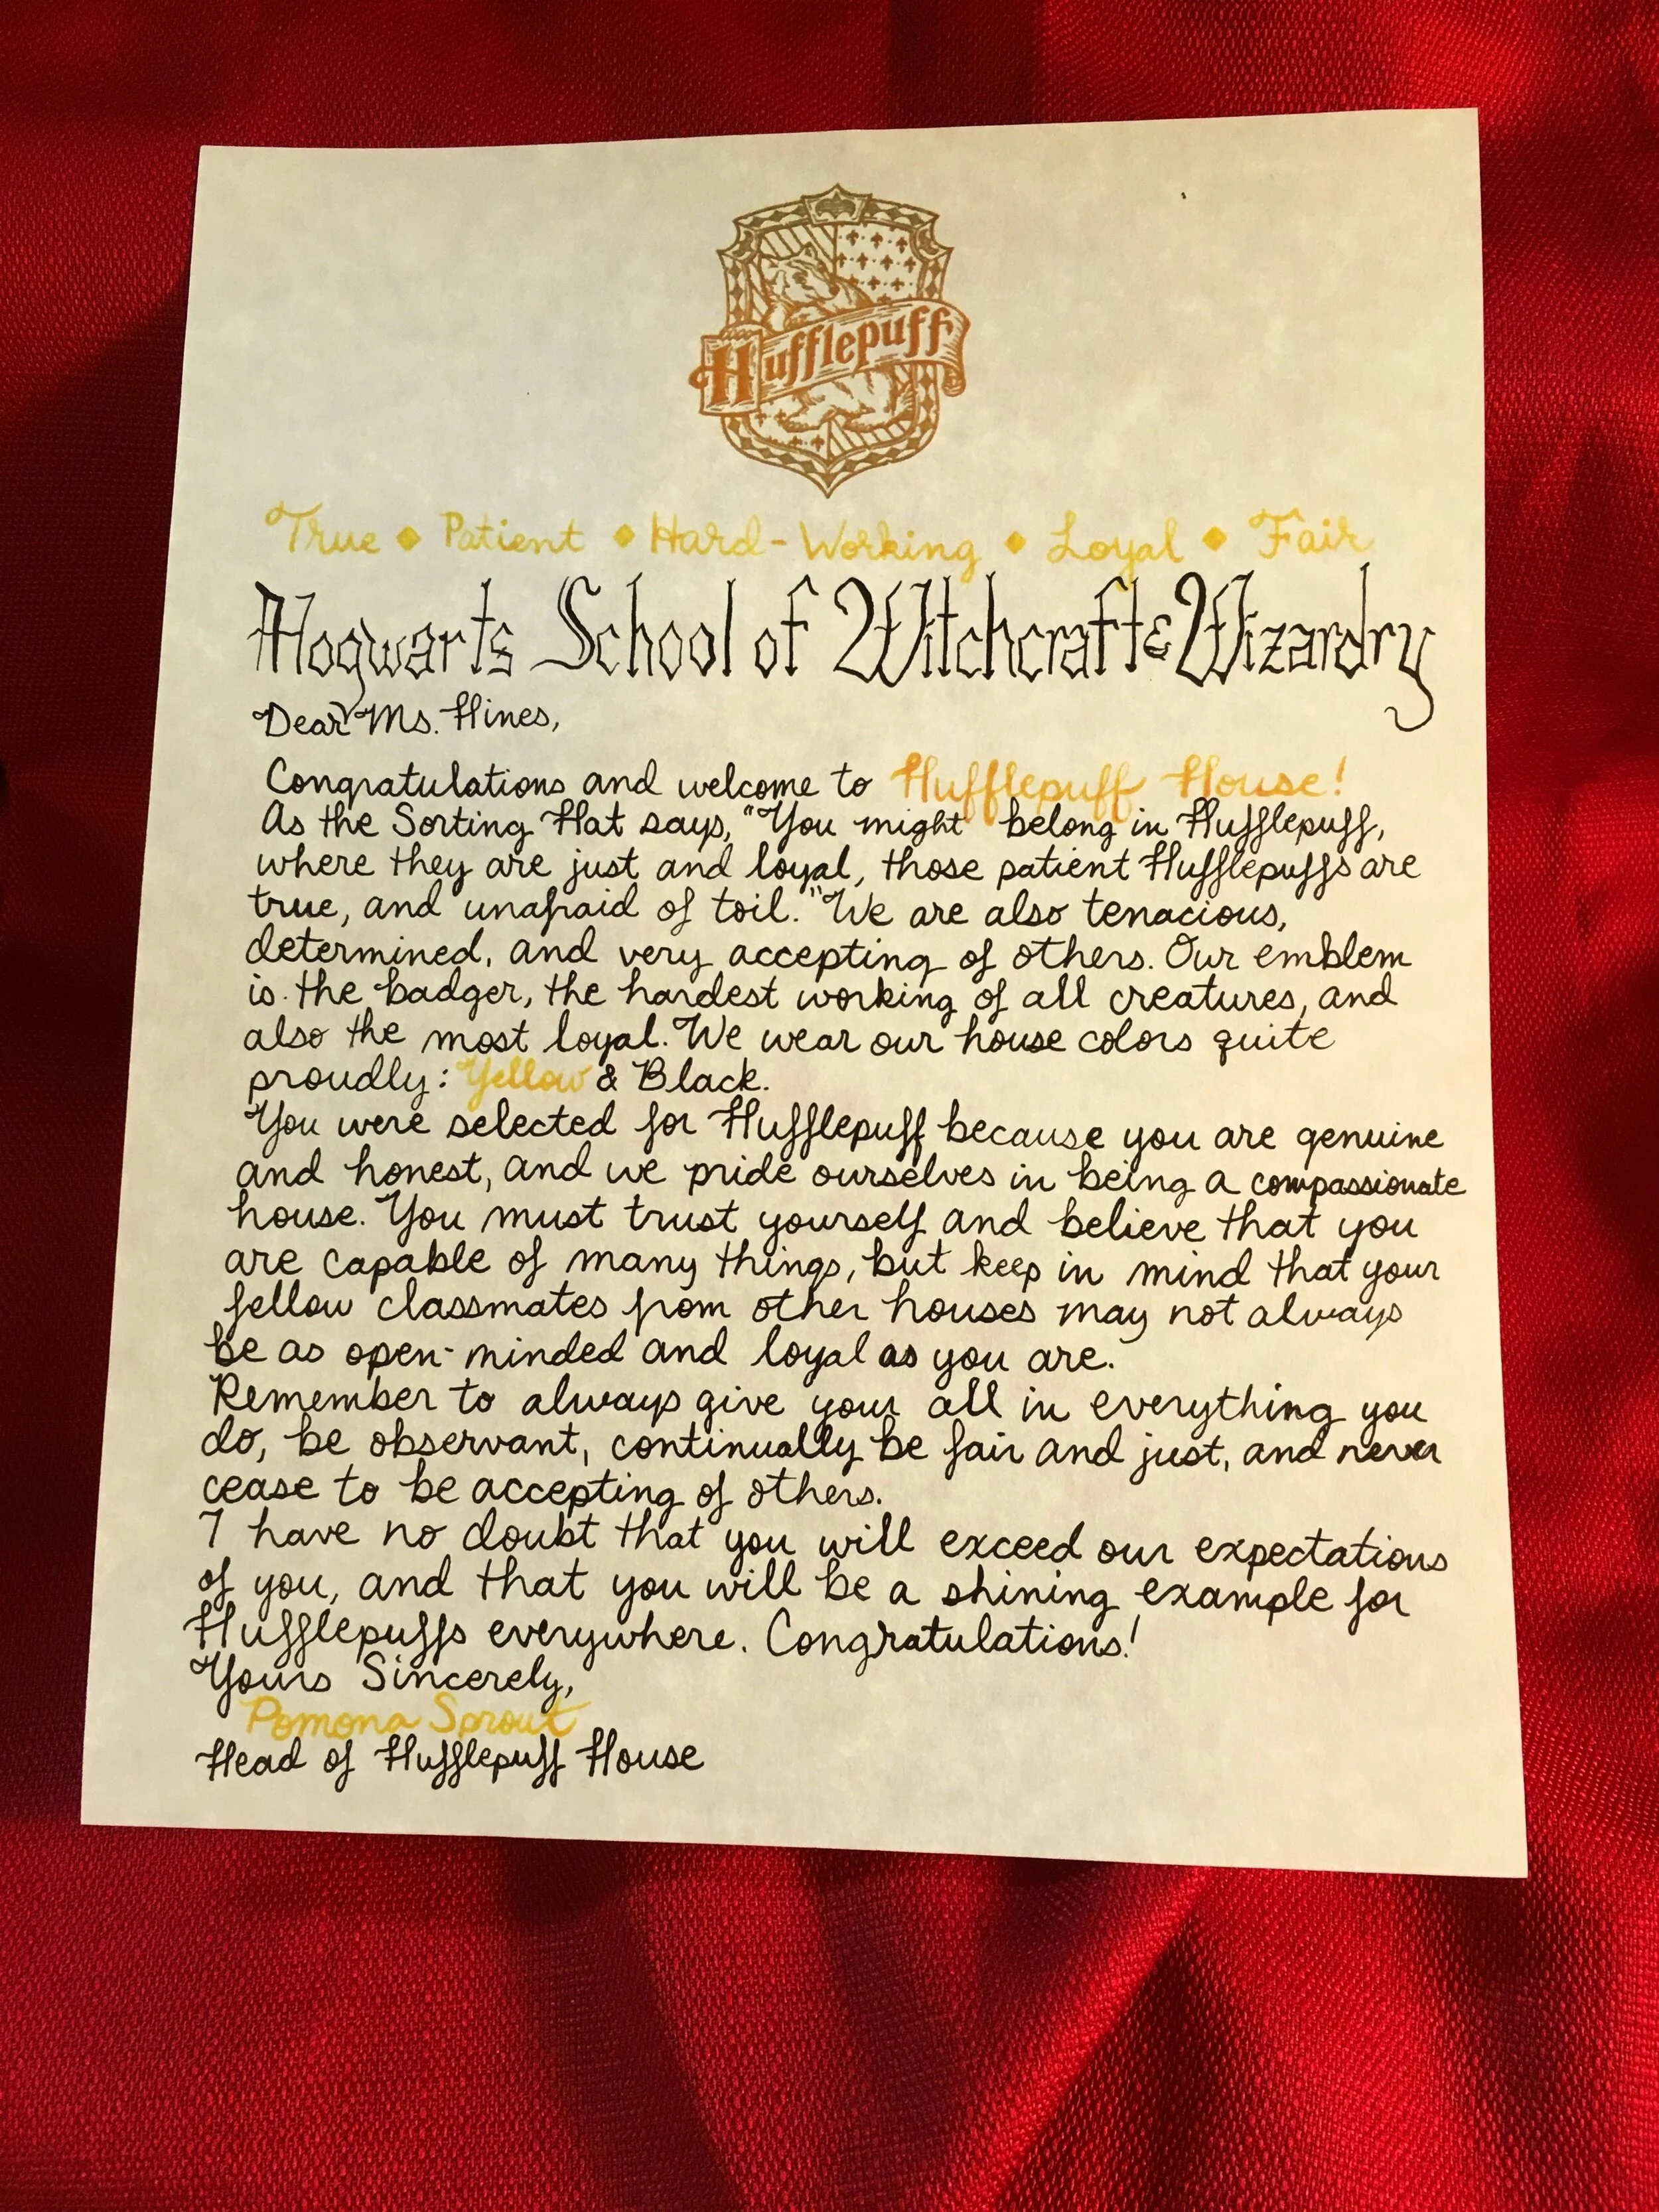 Hufflepuff
True ◆ Patient ◆ Hard-Working ◆ Loyal ◆ Fair
Hogwarts School of Witchcraft & Wizardry
Dear Ms. Hines,
Congratulations and welcome to Hufflepuff House!
As the Sorting Hat says, "You might belong in Hufflepuff,
where they are just and loyal, those patient Hufflepuffs are
true, and unafraid of toil." We are also tenacious,
determined, and very accepting of others. Our emblem
is the badger, the hardest working of all creatures, and
also the most loyal. We wear our house colors quite
proudly: Yellow & Black.
You were selected for Hufflepuff because you are genuine
and honest, and we pride ourselves in being a compassionate
house. You must trust yourself and believe that you
are capable of many things, but keep in mind that your
fellow classmates from other houses may not always
be as open-minded and loyal as you are.
Remember to always give your all in everything you
do, be observant, continually be fair and just, and never
cease to be accepting of others.
I have no doubt that you will exceed our expectations
of you, and that you will be a shining example for
Hufflepuffs everywhere. Congratulations!
Yours Sincerely,
Pomona Sprout
Head of Hufflepuff House